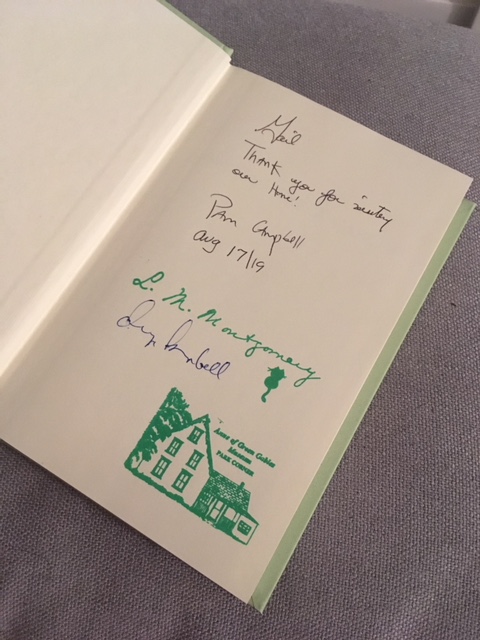 Gail
Thank you for visiting
our Home!
Pam Campbell
Aug 17/19
L. M. Montgomery
Campbell
Anne of Green Gables
Museum
PARK CORNER